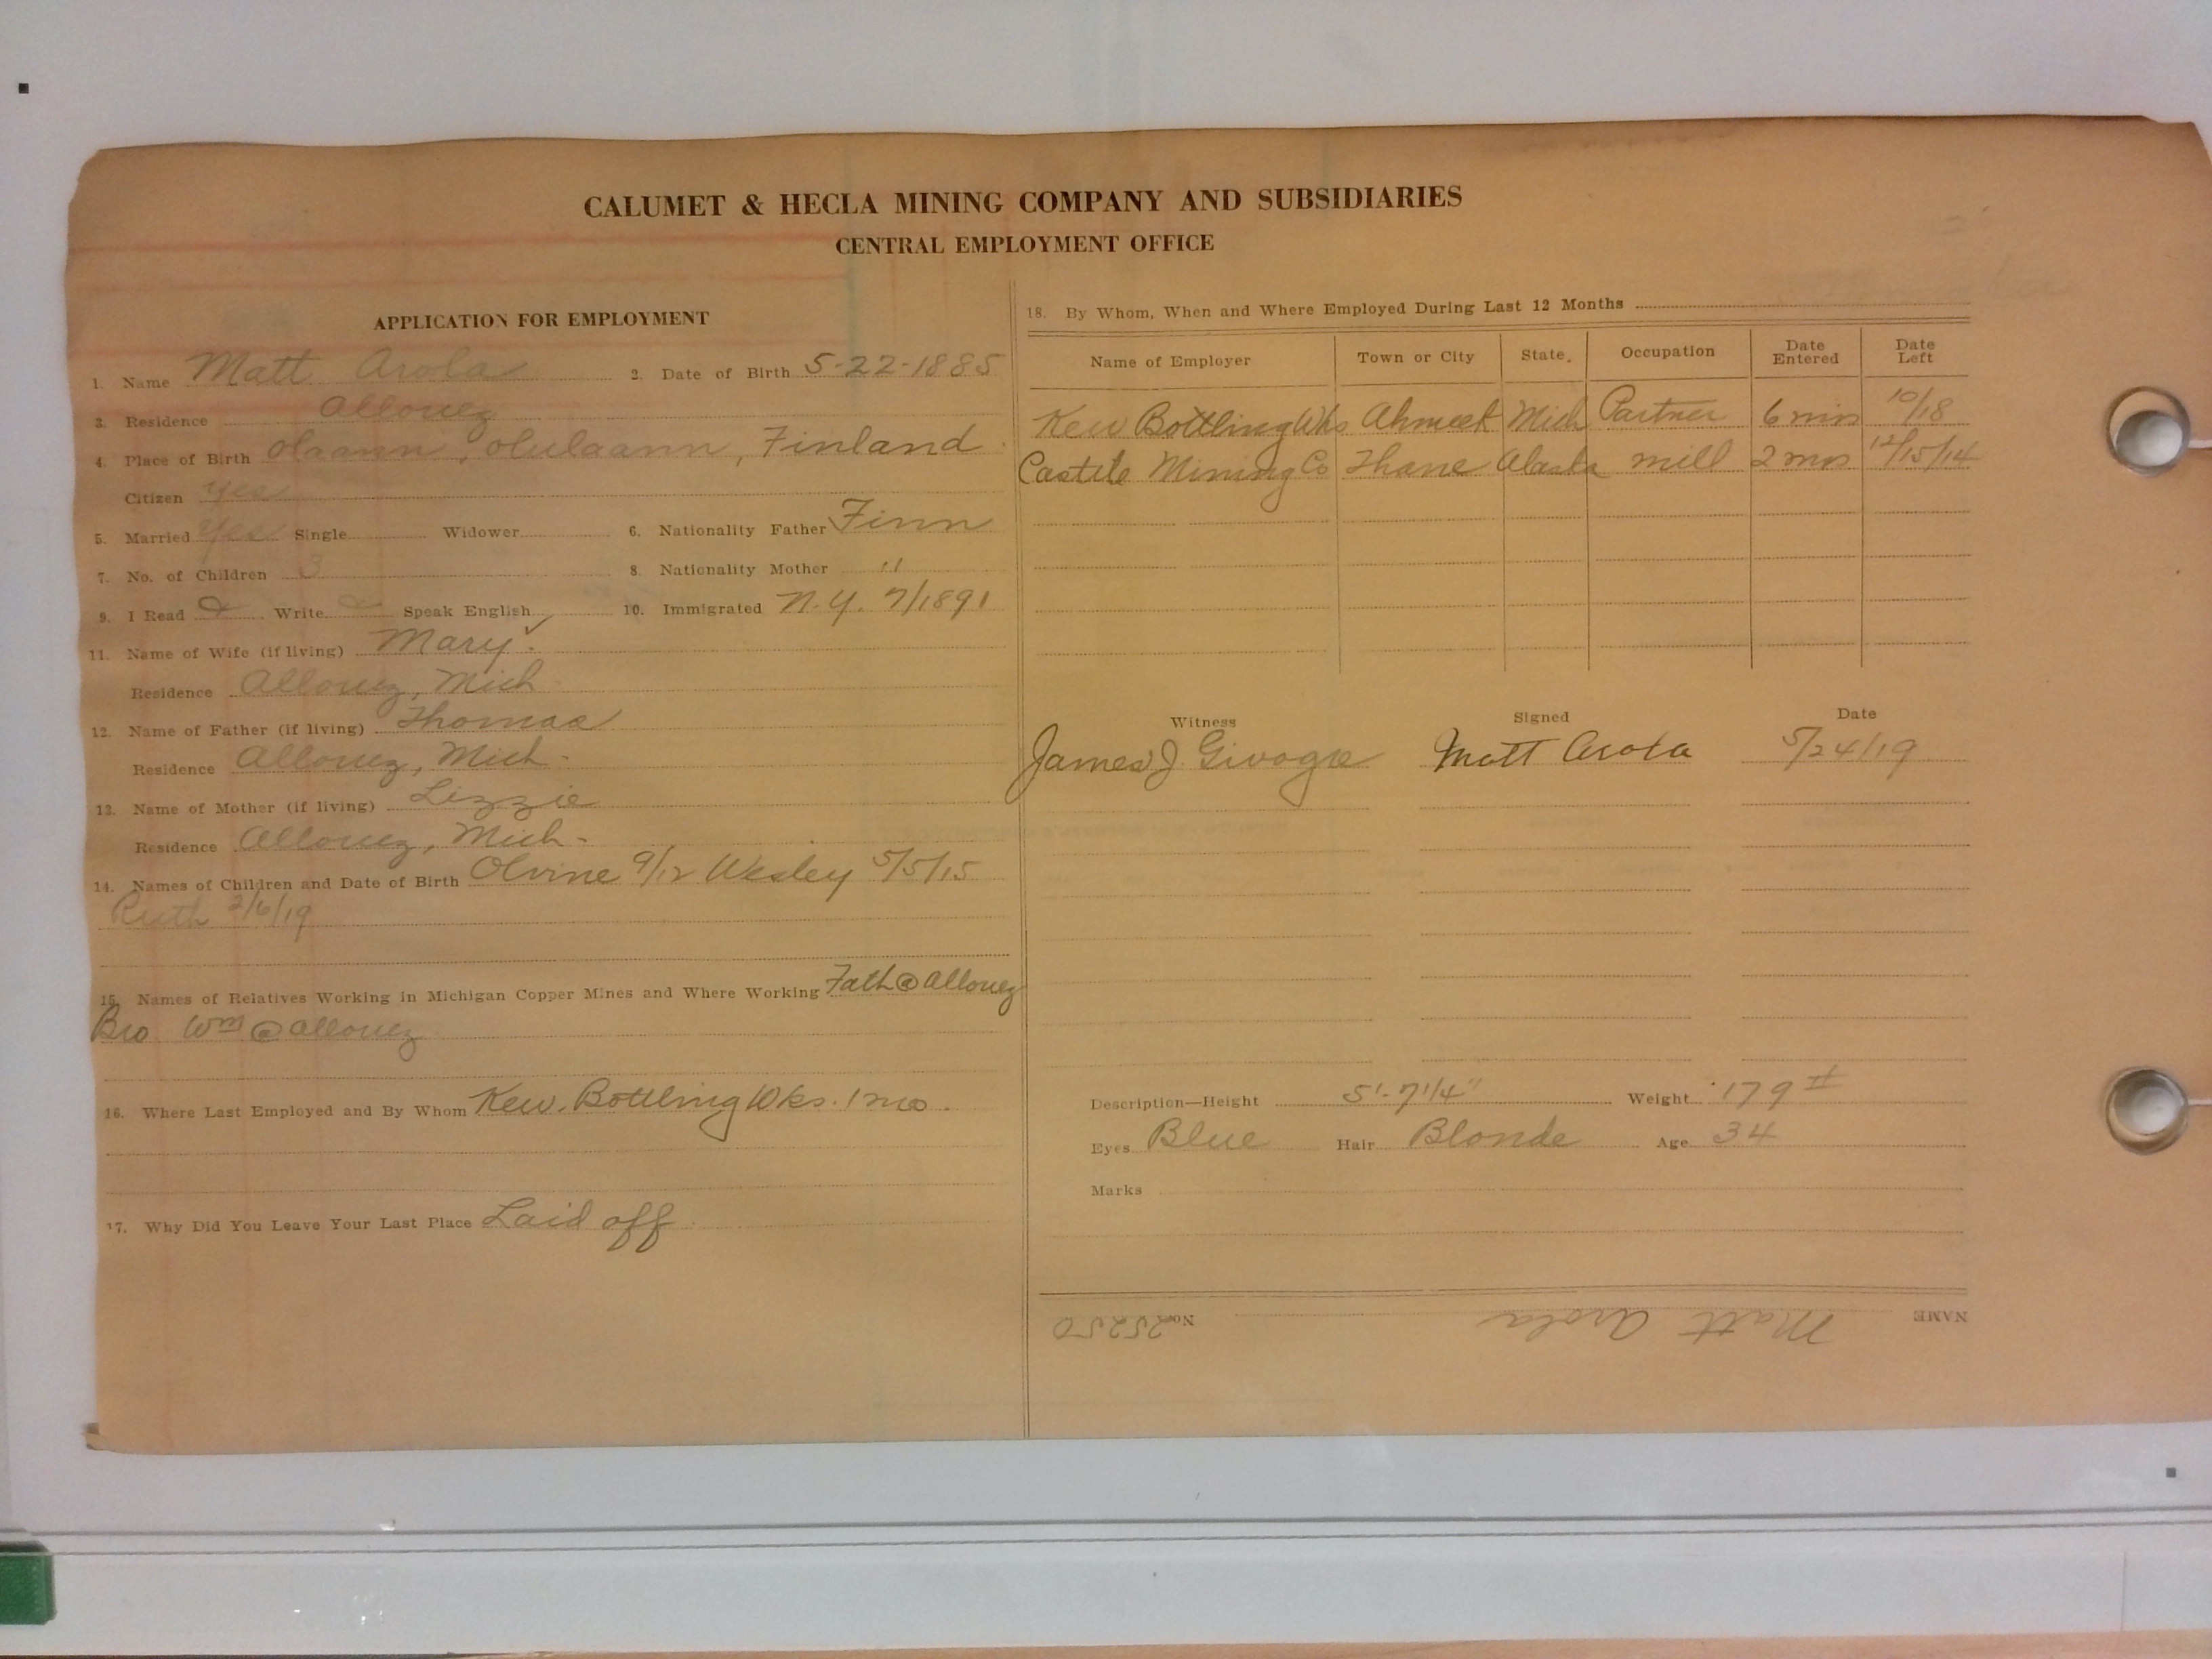 CALUMET & HECLA MINING COMPANY AND SUBSIDIARIES
CENTRAL EMPLOYMENT OFFICE
APPLICATION FOR EMPLOYMENT
1. Name Matt Arola 2. Date of Birth 5-22-1885
3. Residence Allouez
4. Place of Birth Olaann, Olulaann, Finland
Citizen Yes
5. Married Yes Single Widower 6. Nationality Father Finn
7. No. of Children 3 8. Nationality Mother "
9. I Read Write Speak English ✓ 10. Immigrated N.Y. 7/1891
11. Name of Wife (if living) Mary
Residence Allouez, Mich
12. Name of Father (if living) Thomas
Residence Allouez, Mich-
13. Name of Mother (if living) Lizzie
Residence Allouez, Mich-
14. Names of Children and Date of Birth Olvine 9/12 Wesley 5/5/15
Ruth 3/6/19
15. Names of Relatives Working in Michigan Copper Mines and Where Working Fath @ Allouez
Bro Wm @ Allouez
16. Where Last Employed and By Whom Kew. Bottling Wks. 1 mo.
17. Why Did You Leave Your Last Place Laid off
18. By Whom, When and Where Employed During Last 12 Months
Name of Employer Town or City State. Occupation Date Entered Date Left
Kew Bottling Wks Ahmeek Mich Partner 6 mos 10/18
Castile Mining Co Thane Alaska mill 2 mos 12/15/14
Witness Signed Date
James J. Matt Arola 5/24/19
Description—Height 5'-7 1/4" Weight 179 #
Eyes Blue Hair Blonde Age 34
Marks
NAME Matt Arola No. 25250